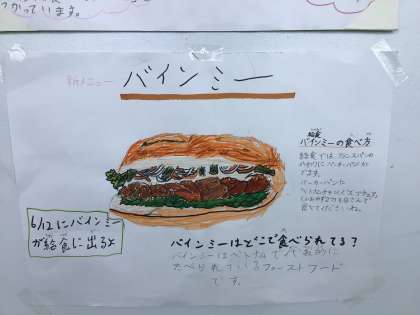 つかっています。
新メニュー
バインミー
給食
バインミーの食べ方
給食では フランスパンの
かわりにバーガーパンだ
です。
バーガーパンに
6/12にバインミー
が給食に出るよ
バインミーはどこで食べられてる？
バインミーはベトナムで代表的に
たべられているファーストフード
です。